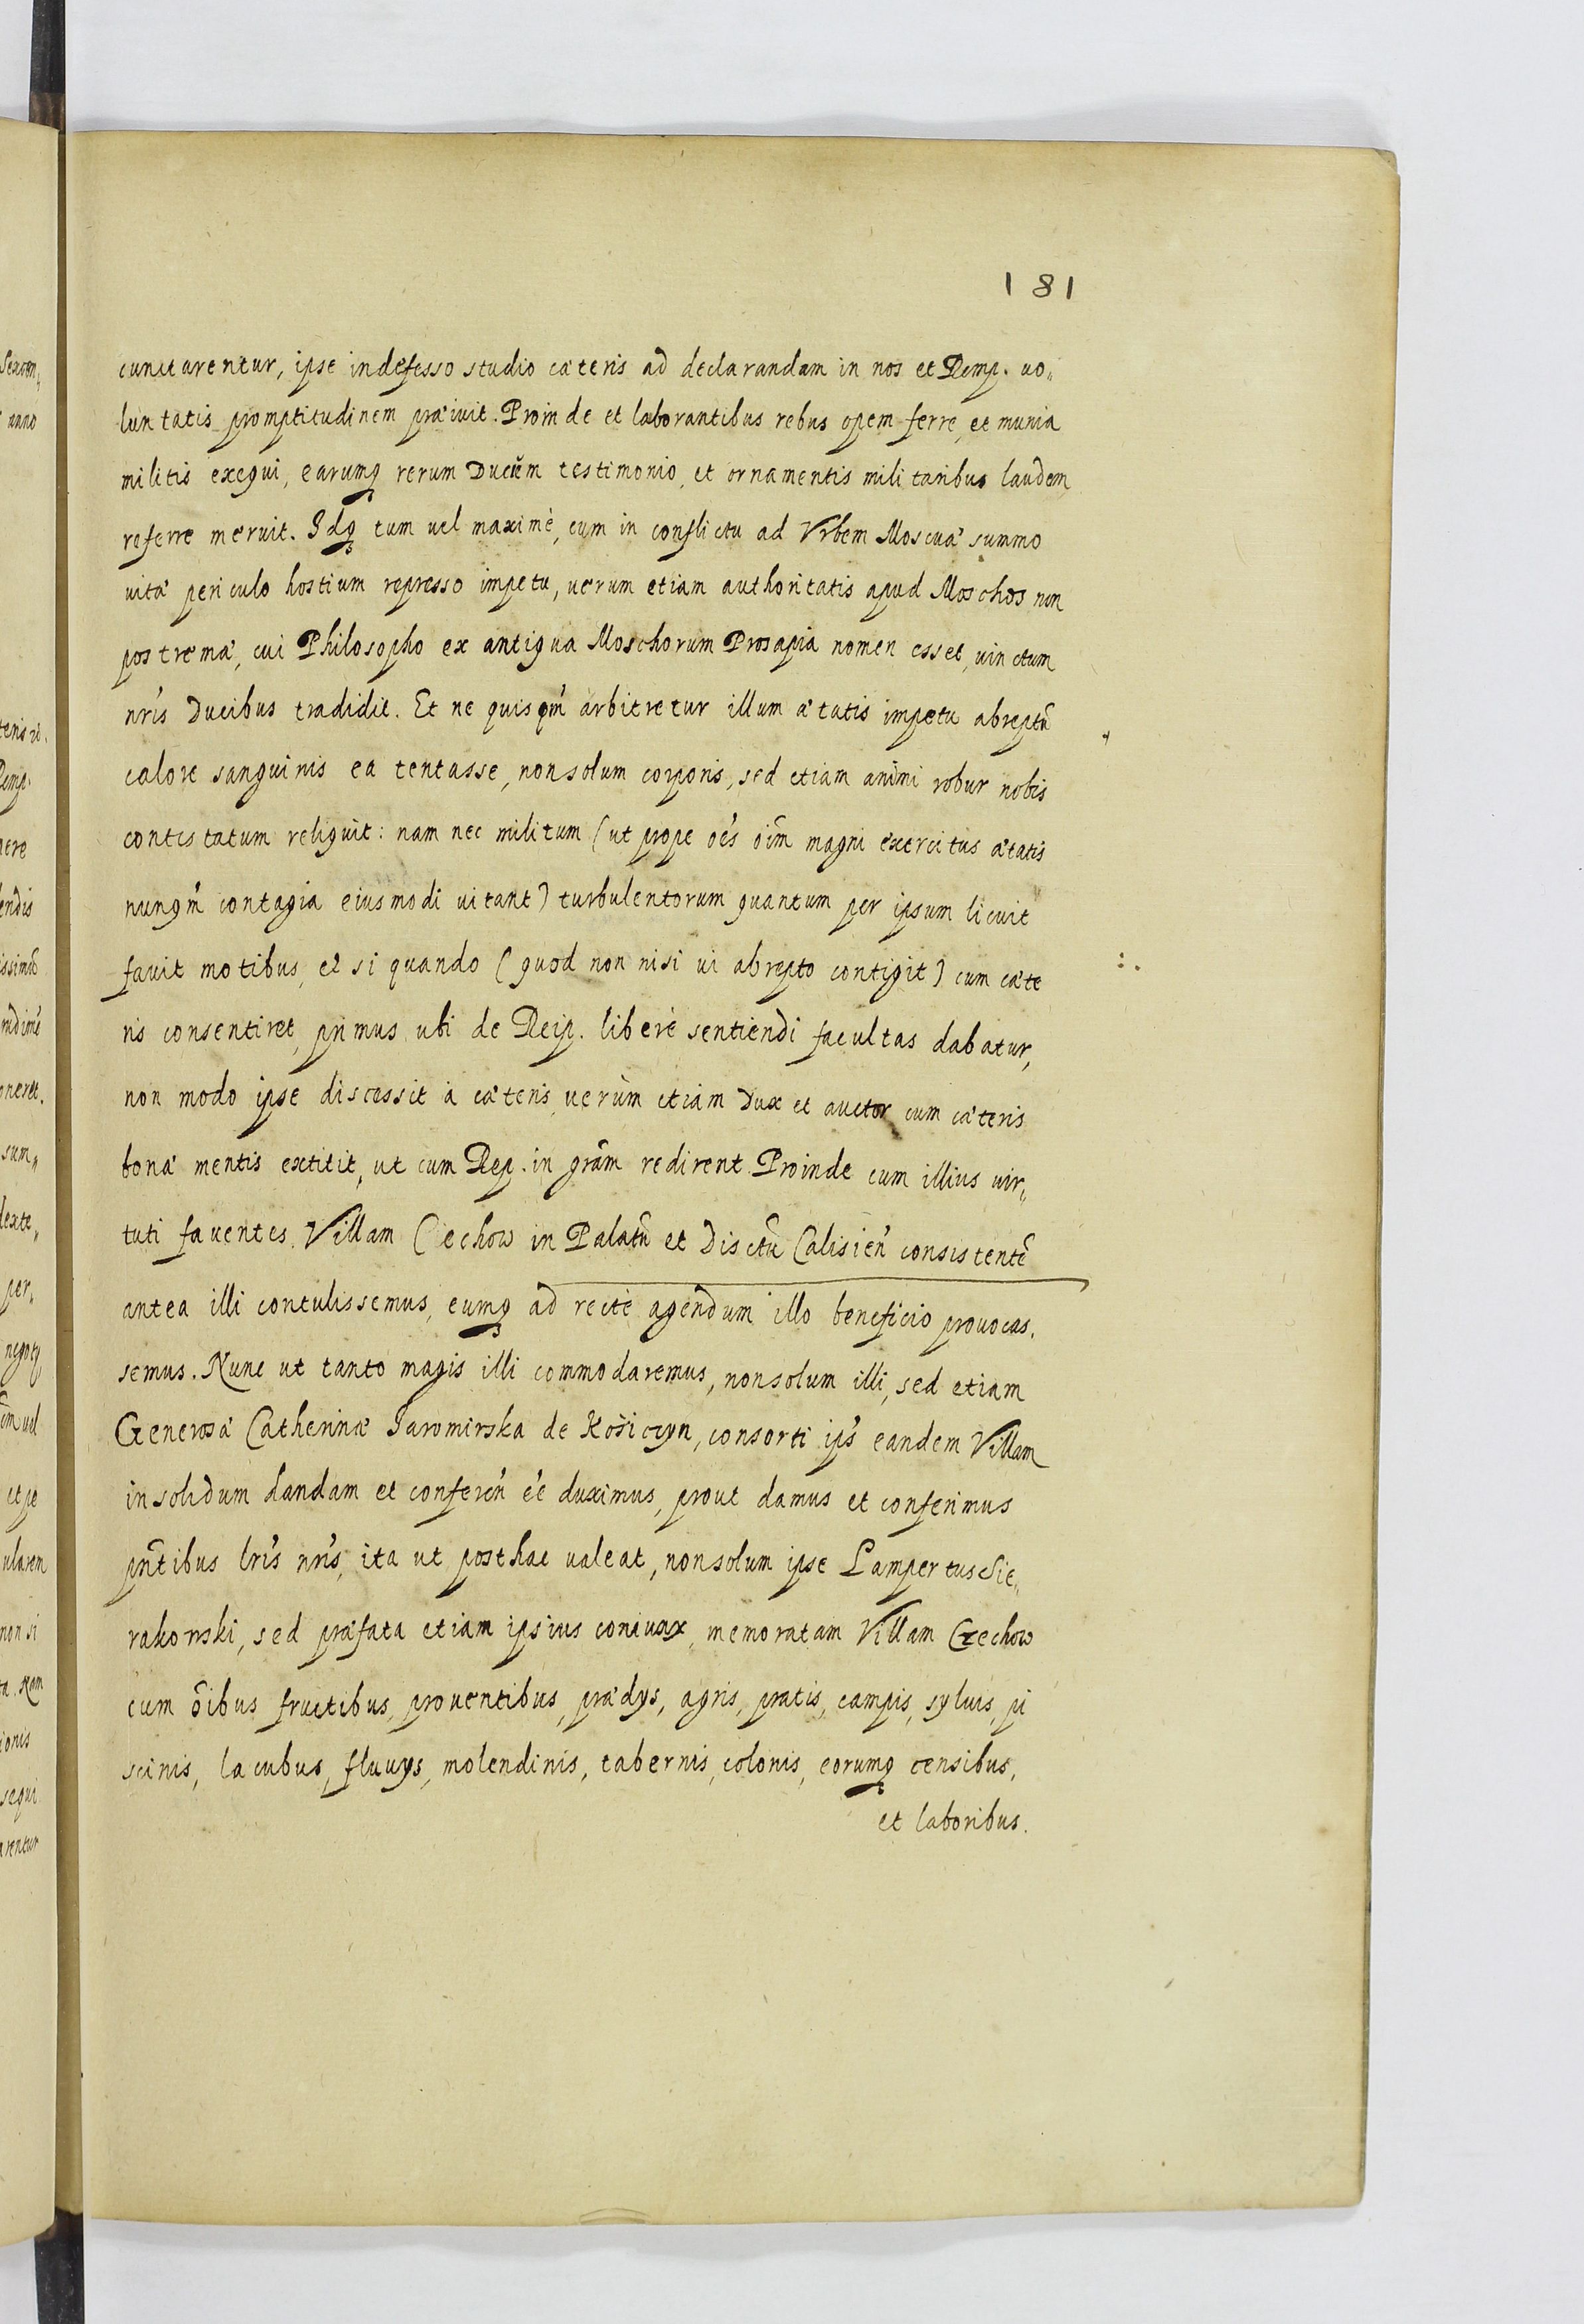 181
cunctarentur, ipse indefesso studio cæteris ad declarandam in nos et Remp. uo„
luntatis promptitudinem præiuit. Proinde et laborantibus rebus opem ferre, et munia
militis exequi, earumq rerum Ducum testimonio, et ornamentis militaribus laudem
referre meruit. Idq tum uel maximè, cum in conflictu ad Vrbem Moscuæ summo
uitæ periculo hostium represso impetu, uerum etiam authoritatis apud Moschos non
postremæ, cui Philosopho ex antiqua Moschorum Prosapia nomen esset, uinctum
nr̃is Ducibus tradidit. Et ne quisqm̃ arbitretur illum ætatis impetu abreptũ
calore sanguinis ea tentasse, non solum corporis, sed etiam animi robur nobis
contestatum reliquit: nam nec militum (ut prope oẽs oĩm magni exercitus ætatis
nunqm̃ contagia eiusmodi uitant) turbulentorum quantum per ipsum licuit
fauit motibus, et si quando (quod non nisi ui abrepto contigit) cum cæte
ris consentiret, primus ubi de Reip. liberè sentiendi facultas dabatur,
non modo ipse discessit à cæteris, uerùm etiam Dux et auctor cum cæteris
bonæ mentis extitit, ut cum Rep. in grãm redirent. Proinde cum illius uir„
tuti fauentes. Villam Czechow in Palatũ et Disctũ Calisień consistentẽ
antea illi contulissemus, eumq ad rectè agendum illo beneficio prouocas.
semus. Nunc ut tanto magis illi commodaremus, non solum illi, sed etiam
Generosæ Catherinæ Jaromirska de Kośiczyn, consorti ip̃s eandem Villam
in solidum dandam et confereñ eẽ duximus, prout damus et conferimus
pñtibus lr̃is nr̃is, ita ut posthac ualeat, non solum ipse Lampertus Sie„
rakowski, sed præfata etiam ipsius coniunx, memoratam Villam Czechow
cum oĩbus fructibus, prouentibus, prædys, agris, pratis, campis, syluis, pi
scinis, lacubus, fluuys, molendinis, tabernis, colonis, eorumq censibus,
et laboribus.